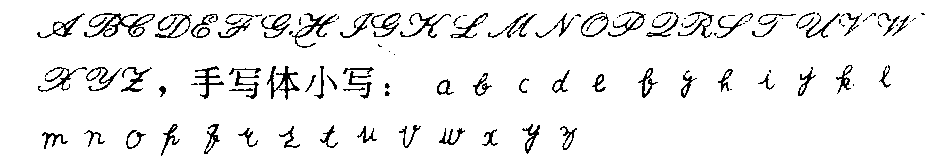 A B C D E F G H I J K L M N O P Q R S T U V W
X Y Z，手写体小写： a b c d e f g h i j k l
m n o p q r s t u v w x y z